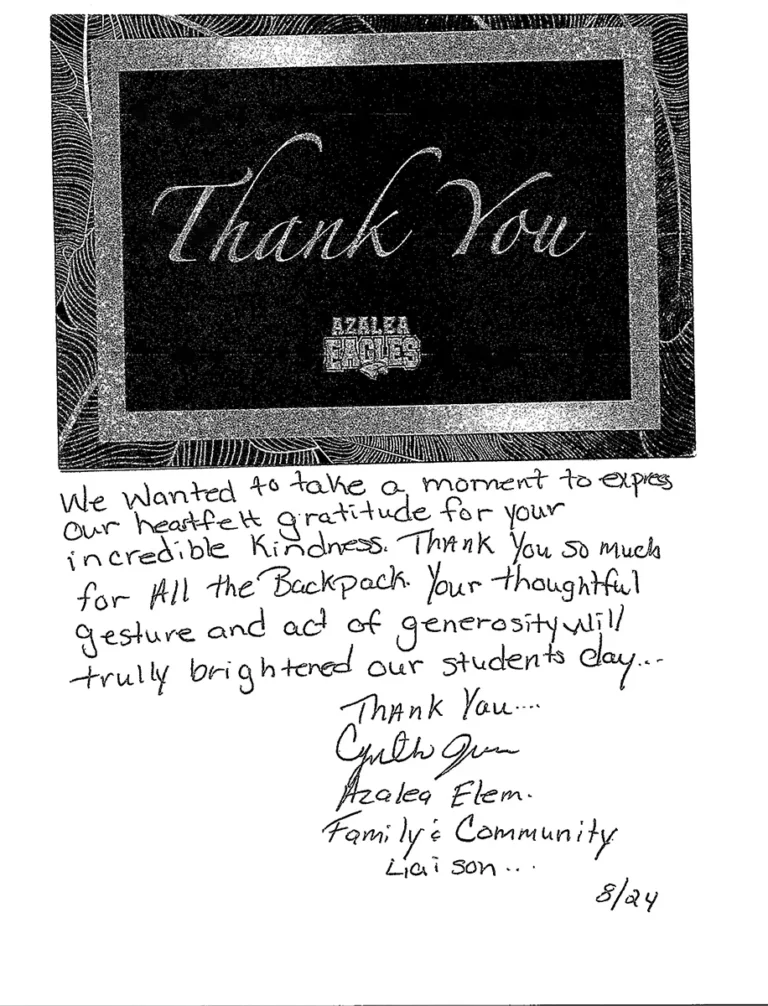 Thank You
AZALEA
EAGLES
We Wanted to take a moment to express
our heartfelt gratitude for your
incredible Kindness. Thank You so Much
for All the Backpack. Your thoughtful
gesture and act of generosity will
trully brightened our students day...
Thank You....
Azalea Elem.
Family & Community
Liaison...
8/24